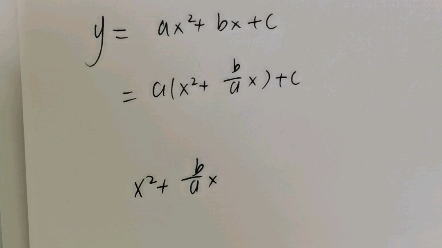 y = ax²+ bx+c
= a(x²+ b/a x)+c
x²+ b/a x